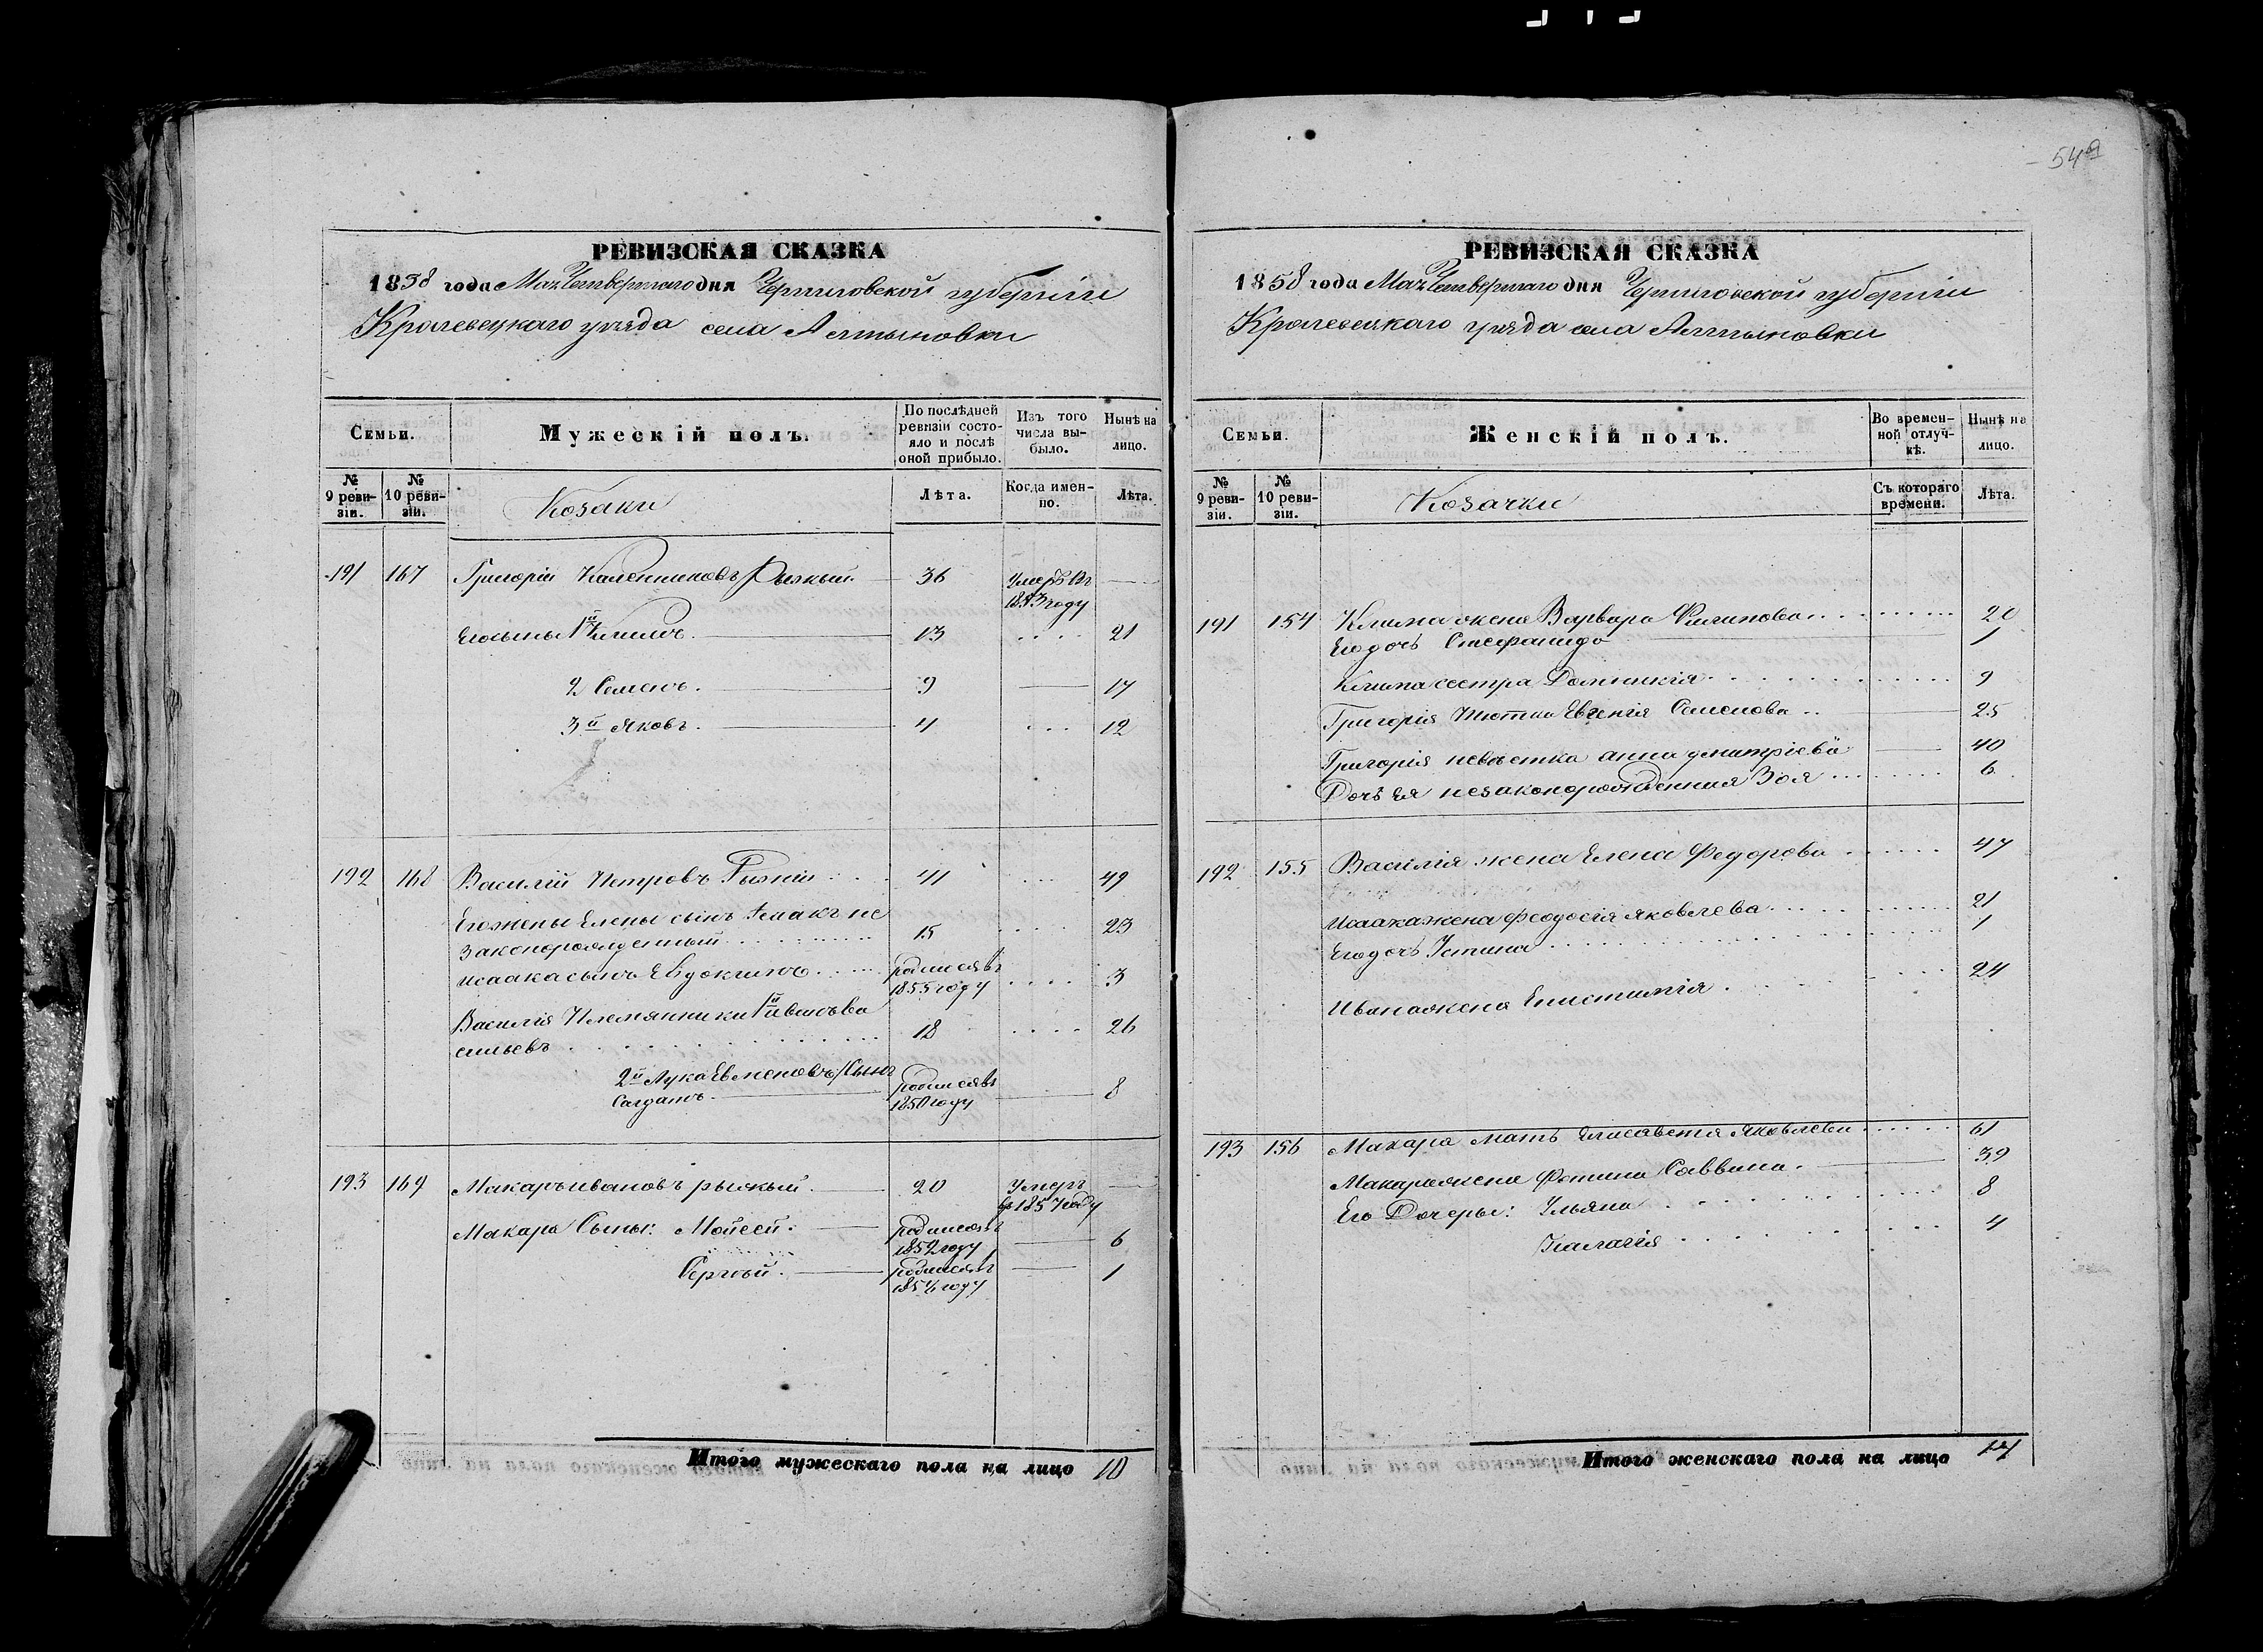 549
РЕВИЗСКАЯ СКАЗКА
1858 года Мая Четвертаго дня Черниговской губерніи
Кролевецкаго уѣзда села Алтыновки
Семьи.
Мужескій полъ.
По послѣдней ревизіи состояло и послѣ оной прибыло.
Изъ того числа выбыло.
Нынѣ на лицо.
№ 9 ревизіи.
№ 10 ревизіи.
Козаки
Лѣта.
Когда именно.
Лѣта.
191 167 Григорій Калениковъ Рыжый 36 Умеръ въ
1853 году
Его сыны 1й Климъ. 13 21
2 Семенъ. 9 17
3й Яковъ. 4 12
192 168 Василій Петровъ Рыжій 41 49
Его жены Елены сынъ Исаакъ не
законорожденный 15 23
Исаака сынъ Евдокимъ родился въ 3
1855 году
Василія Племянники 1й Иванъ Ва
сильевъ 18 26
2й Лука Евменовъ Сынъ родился въ
Салдатъ. 1850 году 8
193 169 Макаръ Ивановъ рыжый 20 Умеръ
въ 1857 году
Макара Сыны: Мойсей. родился въ
1852 году 6
Сергѣй. родился въ 1
году
Итого мужескаго пола на лицо 10
РЕВИЗСКАЯ СКАЗКА
1858 года Мая Четвертаго дня Черниговской губерніи
Кролевецкаго уѣзда села Алтыновки
Семьи.
Женскій полъ.
Во временной отлучкѣ.
Нынѣ на лицо.
№ 9 ревизіи.
№ 10 ревизіи.
Козачки
Съ котораго времени.
Лѣта.
191 154 Клима жена Варвара Филипова 20
Его дочь Стефанида 1
Клима сестра Домникія 9
Григорія Тютка Евгенія Семенова 25
Григорія невѣстка анна дмитріева 40
Дочь Ея незаконорожденная Зоя 6
192 155 Василія жена Елена Федорова 47
Исаака жена Феодосія Яковлева 21
Его дочь Устина 1
Ивана жена Епистимія 24
193 156 Макара мать Елисавета Яковлева 61
Макара жена Фотина Саввина. 39
Его Дочеры: Ульяна 8
Пелагія 4
Итого женскаго пола на лицо 14